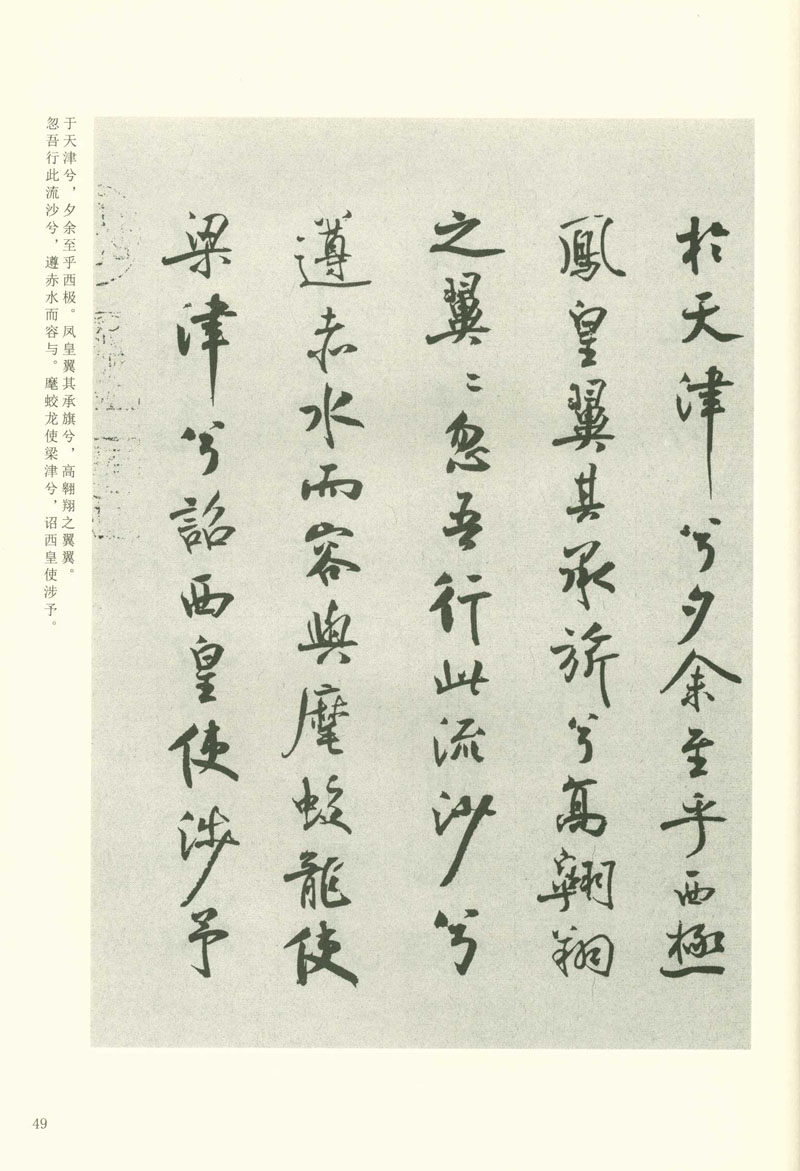 於天津兮夕余至乎西極
鳳皇翼其承旂兮高翱翔
之翼〻忽吾行此流沙兮
遵赤水而容與麾蛟龍使
梁津兮詔西皇使涉予
于天津兮，夕余至乎西极。凤皇翼其承旗兮，高翱翔之翼翼。
忽吾行此流沙兮，遵赤水而容与。麾蛟龙使梁津兮，诏西皇使涉予。
49